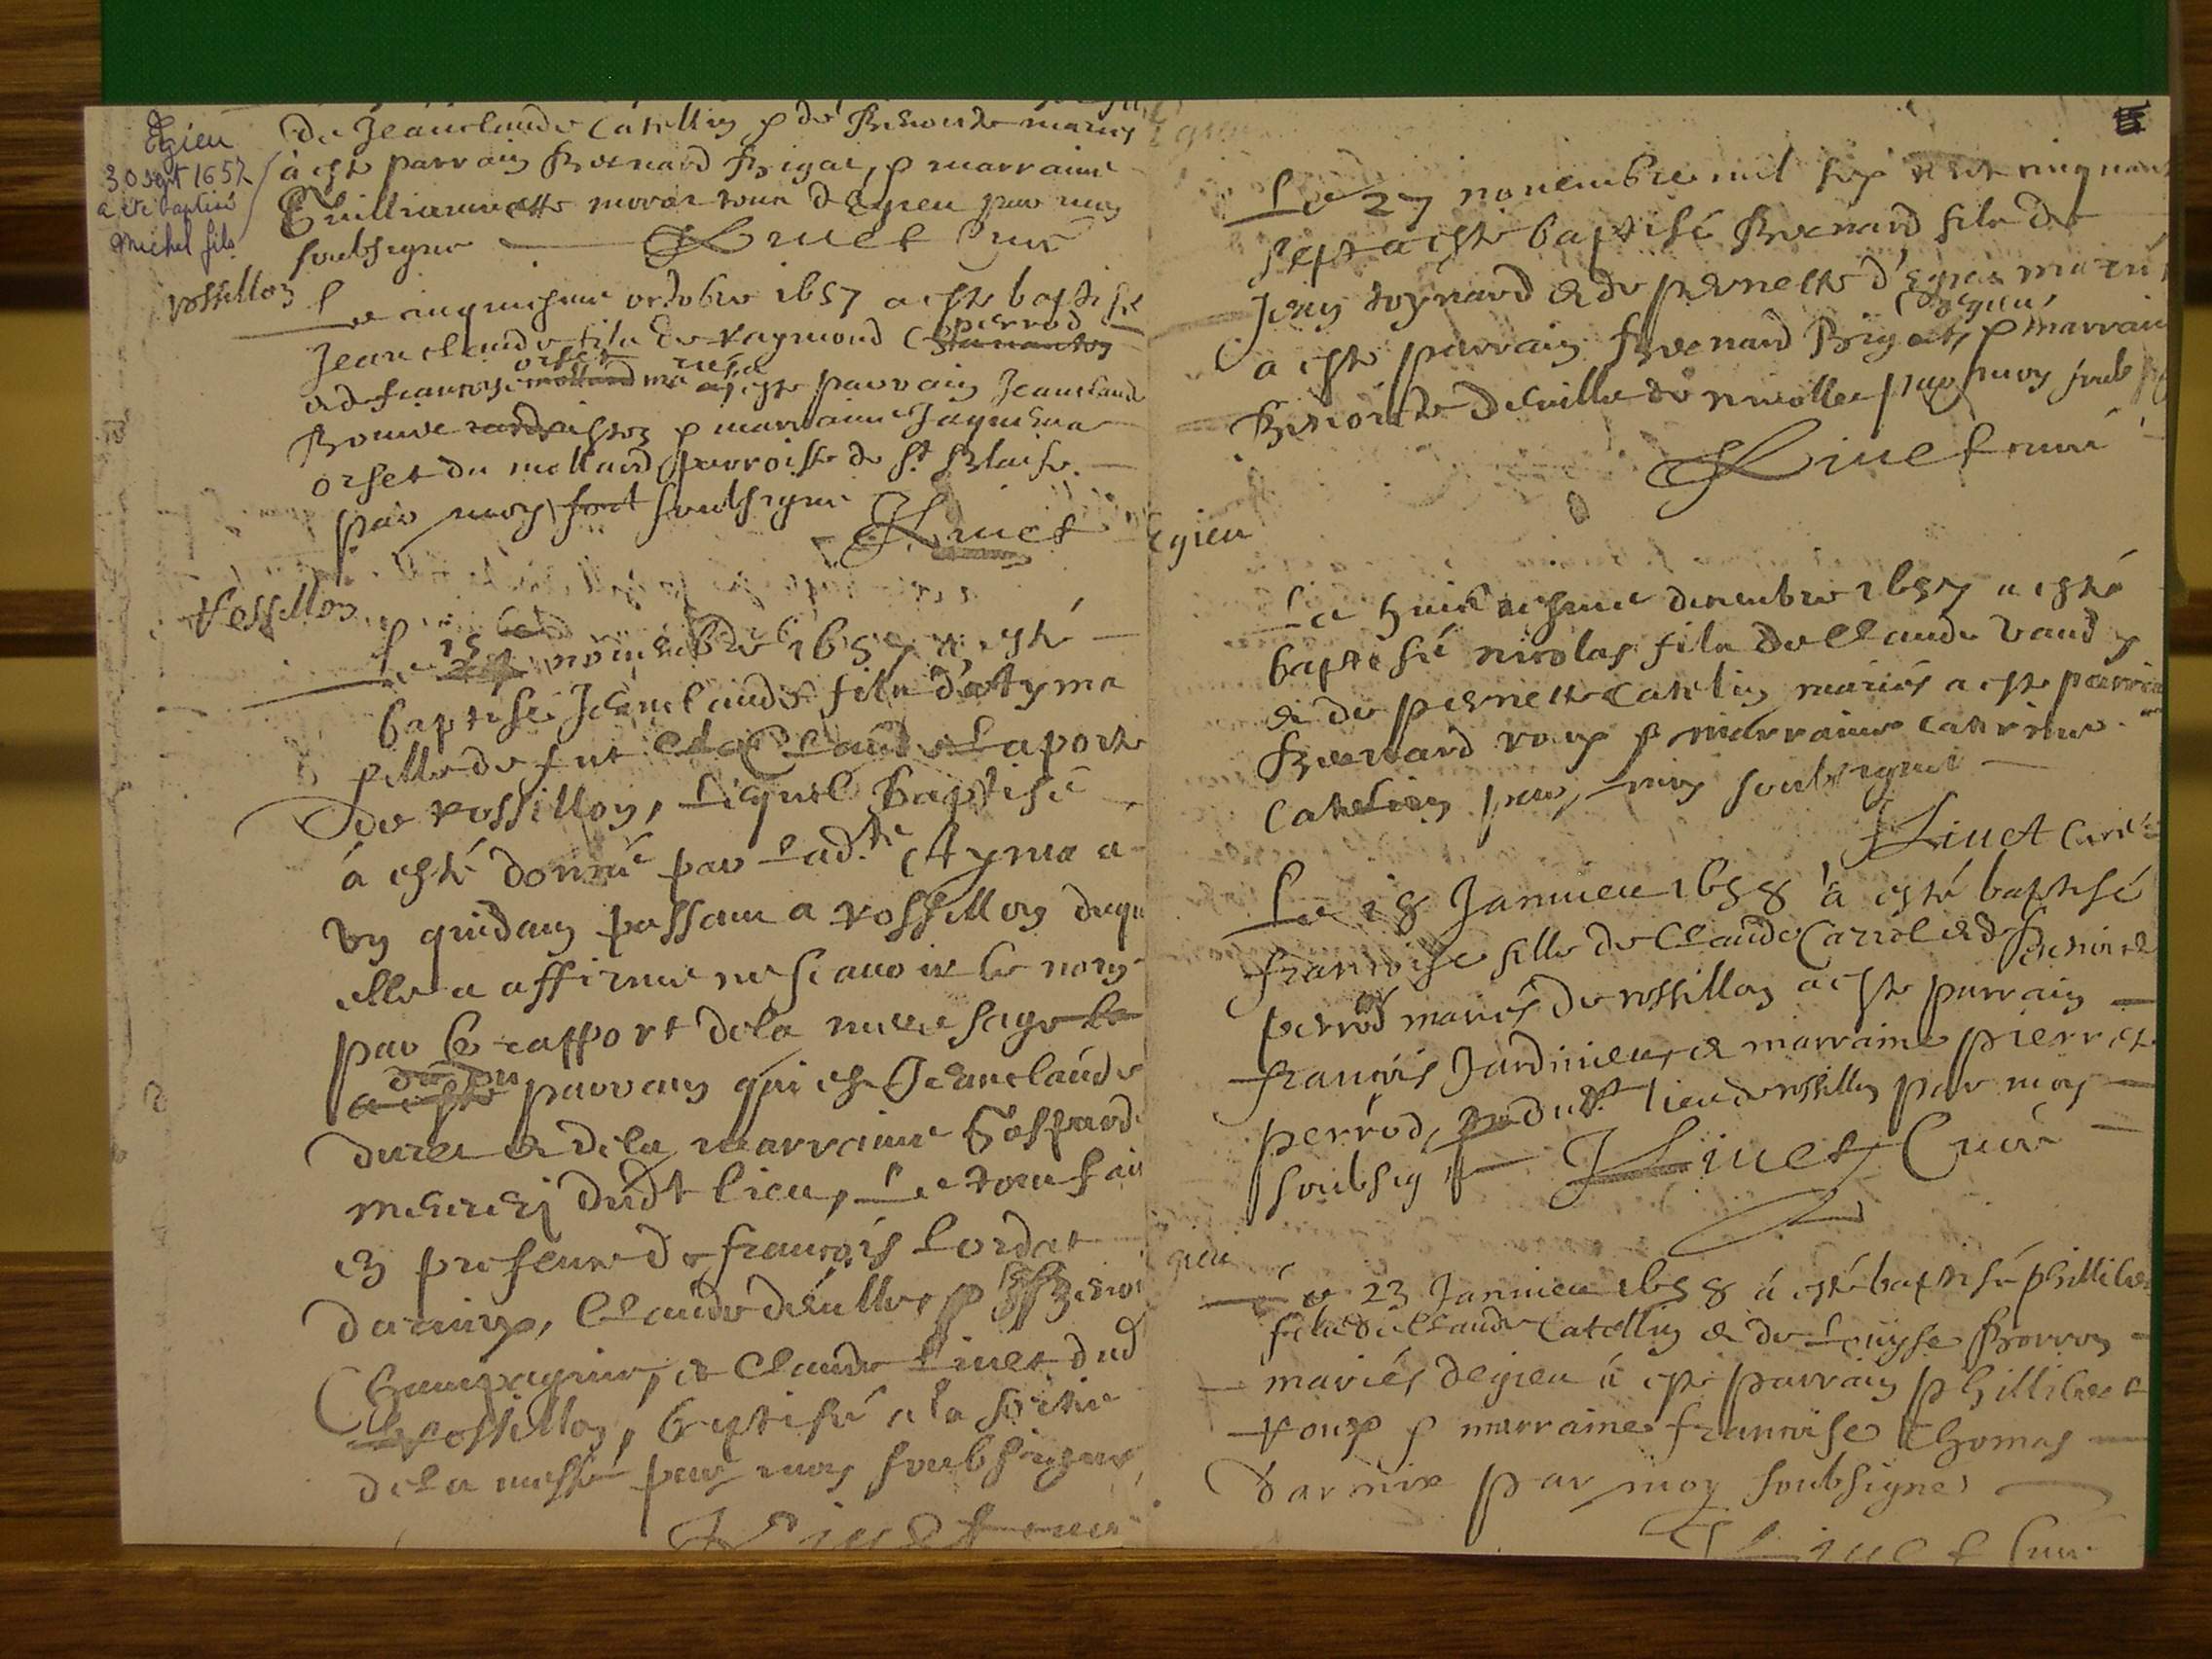 Egieu
30 sept 1657
a été baptisé
Michel fils
de Jeanclaude Catellin & de Benoite mariés
à esté parrain Bernard Brigat, & marraine
Guilliermette tous d'Egieu par moy
soubsigne Livet Curé
rossillon
Le cinquiesme octobre 1657 a esté baptisé
Jean claude fils de raymond perrod
orset
& de francoyse mollard mariés a esté parrain Jeanclaude
& marraine Jaquema
orset du mollard parroisse de St Blaise.
par moy soubsigne
JLivet
Rossillon
Le 15 novembre 1657 a esté
baptisé Jeanclaude fils d'Ayma
fille de fut Claude Laporte
de rossillon, Lequel Baptisé
à esté donné par Ladte Ayma a
un quidam passant a rossillon duquel
elle a affirmé ne scavoir le nom
par le rapport de la mere sage
du dit
a esté parrain qui est Jeanclaude
duret & de la marraine Gasparde
dudt lieu, Le tout fait
en presence de francois Lordat
darmix, Claude deville, &
Champagnie, & Claude Livet dud
Rossillon, baptisé a la sortie
de la messe par moy soubsigné
JLivet curé
Egieu
Le 27 novembre mil six cent cinquante
sept a esté baptisé Bernard fils de
Jean & de pernette d'Egieu mariés
d'Egieu
a esté parrain Bernard Brigat, & marraine
Benoite deville de par moy soubsigné
JLivet curé
Egieu
Le huictiesme decembre 1657 a esté
baptisé nicolas fils de Claude
& de pernette Catelin mariés a esté parrain
Bernard roux & marraine Catherine
Catelin par moy soubsigné
JLivet Curé
Le 18 Janvier 1658 à esté baptisé
francoise fille de Claude Carrel & de benoite
perrod mariés de rossillon a esté parrain
francois Jardinier, & marraine pierrete
perrod, dudt lieu de rossillon par moy
soubsigné JLivet Curé
Egieu
Le 23 Janvier 1658 à esté baptisé phillibert
fils de Claude Catellin & de Louyse Borron
mariés degieu à esté parrain phillibert
roux & marraine francoise thomas
darmix par moy soubsigné
JLivet Curé